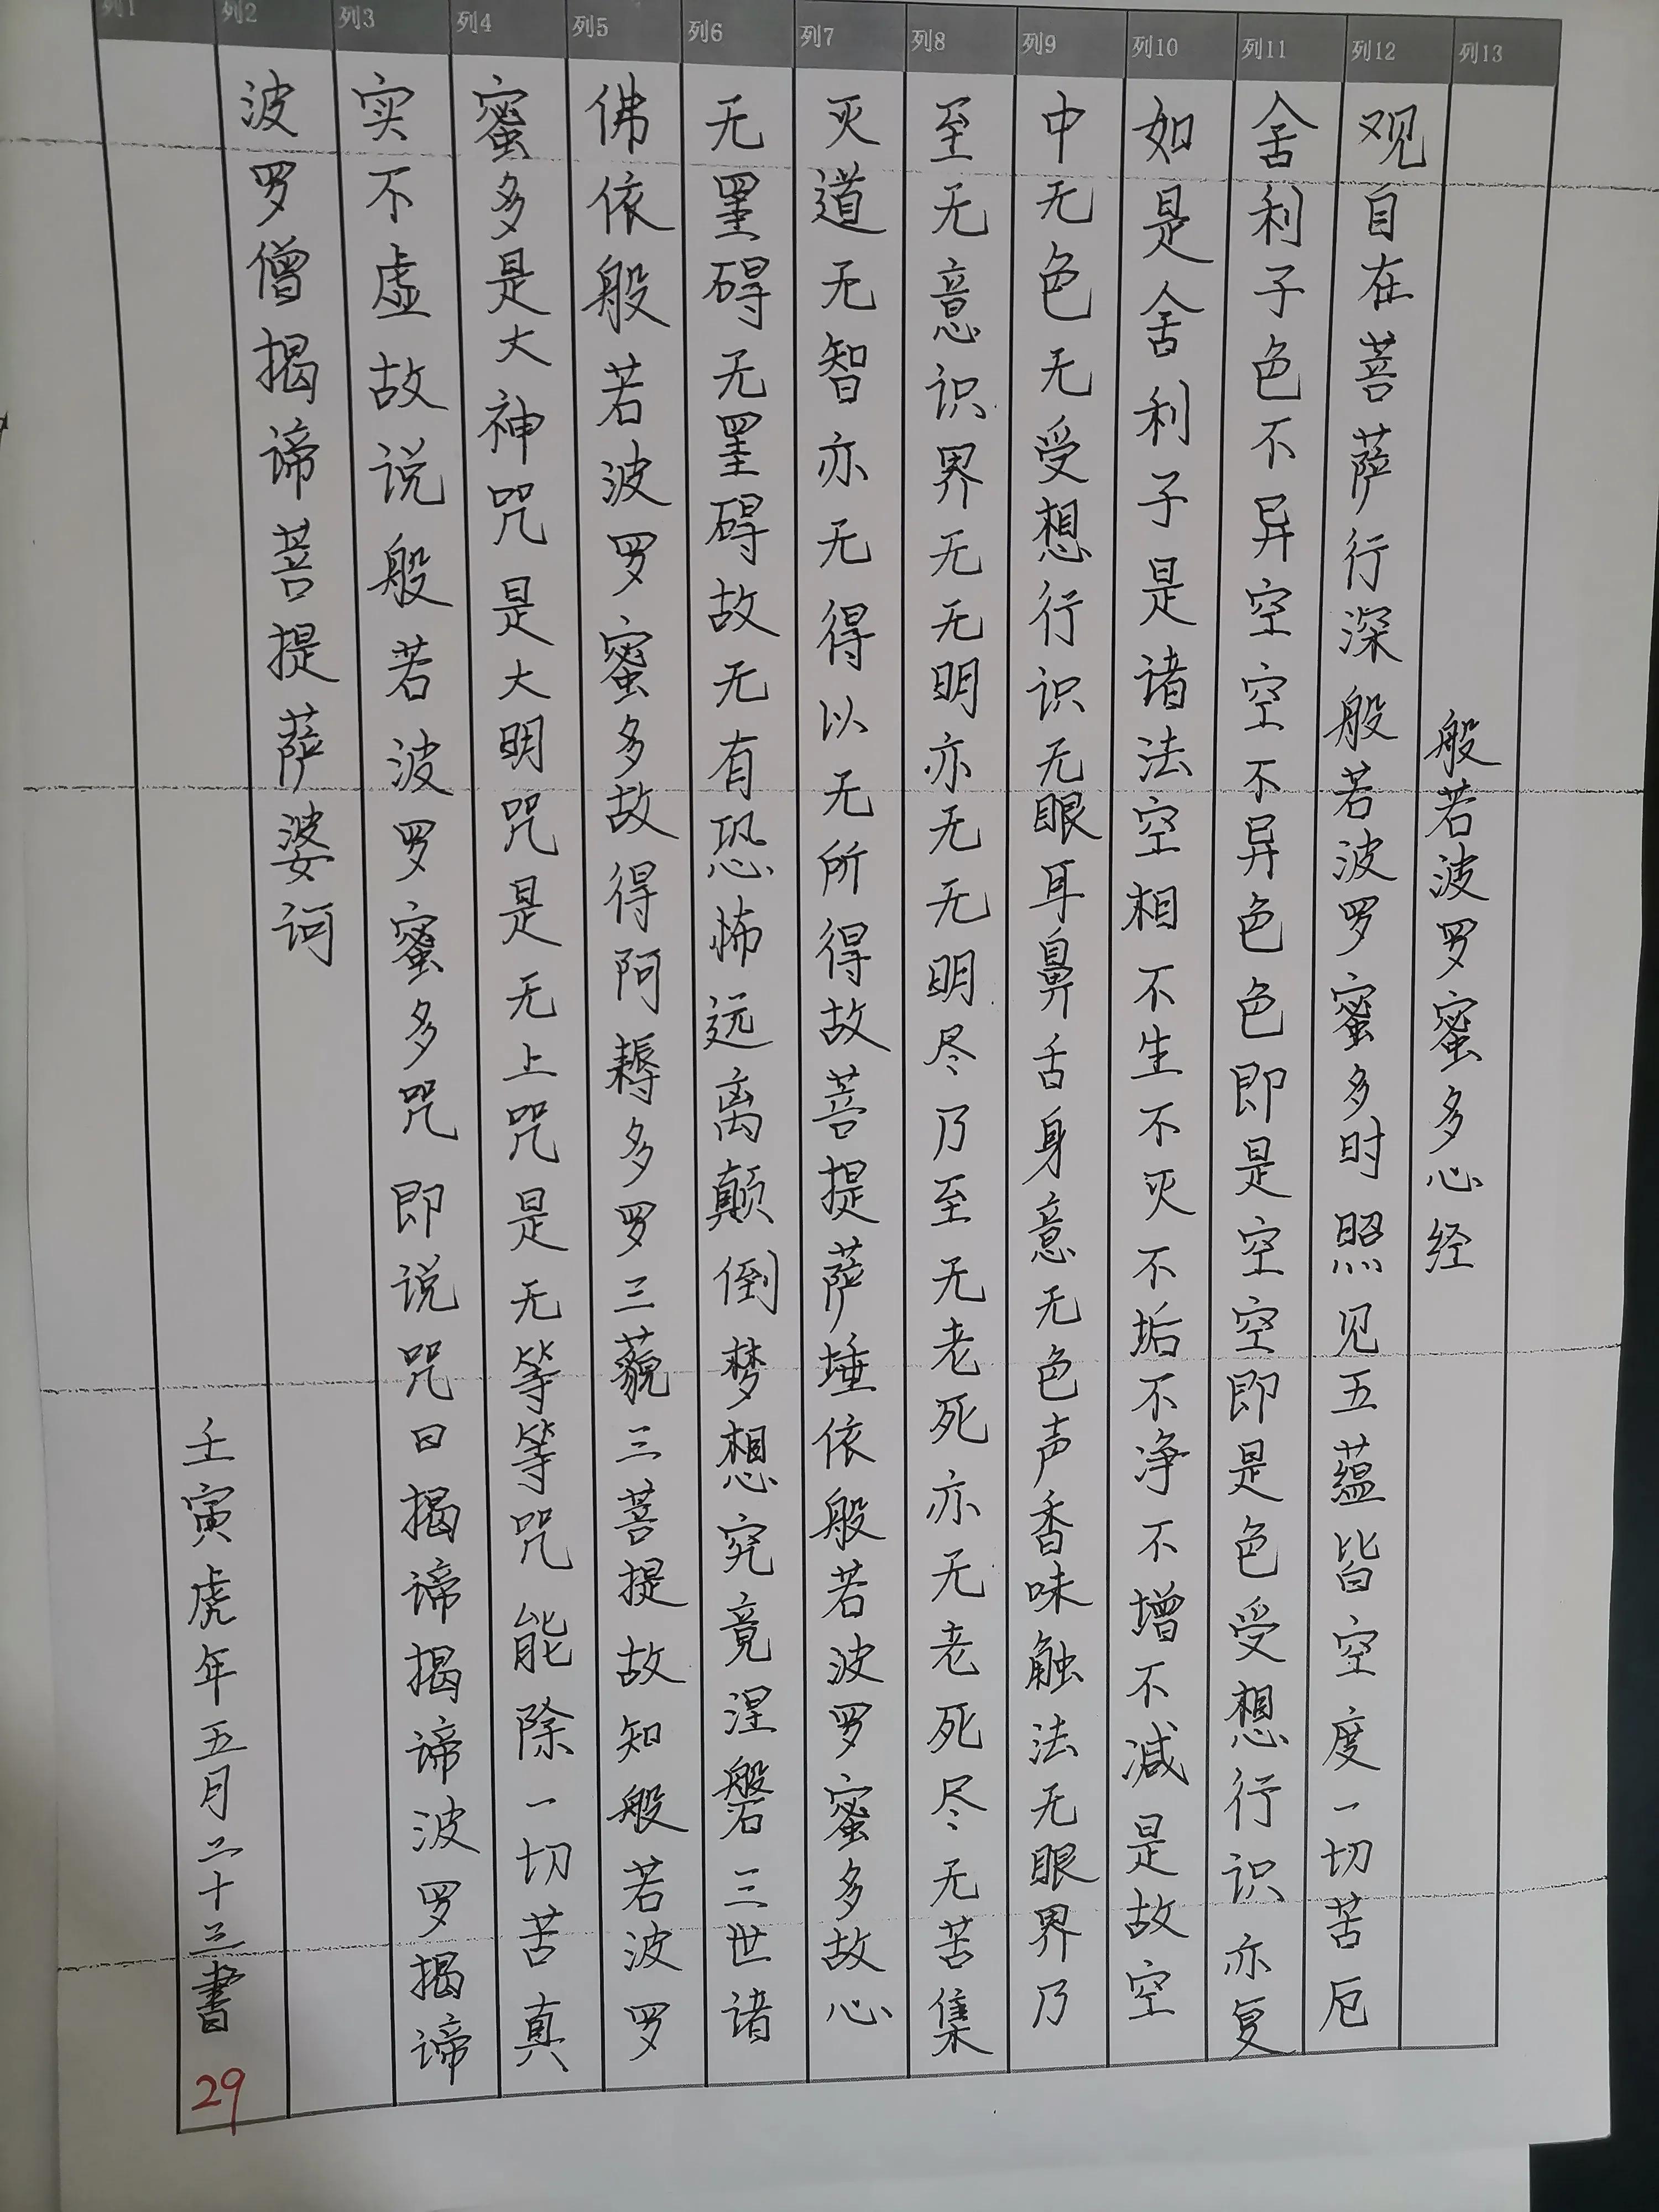 列1 列2 列3 列4 列5 列6 列7 列8 列9 列10 列11 列12 列13
般若波罗蜜多心经
观自在菩萨行深般若波罗蜜多时照见五蕴皆空度一切苦厄
舍利子色不异空空不异色色即是空空即是色受想行识亦复
如是舍利子是诸法空相不生不灭不垢不净不增不减是故空
中无色无受想行识无眼耳鼻舌身意无色声香味触法无眼界乃
至无意识界无无明亦无无明尽乃至无老死亦无老死尽无苦集
灭道无智亦无得以无所得故菩提萨埵依般若波罗蜜多故心
无罣碍无罣碍故无有恐怖远离颠倒梦想究竟涅磐三世诸
佛依般若波罗蜜多故得阿耨多罗三藐三菩提故知般若波罗
蜜多是大神咒是大明咒是无上咒是无等等咒能除一切苦真
实不虚故说般若波罗蜜多咒即说咒曰揭谛揭谛波罗揭谛
波罗僧揭谛菩提萨婆诃
壬寅虎年五月二十三書
29